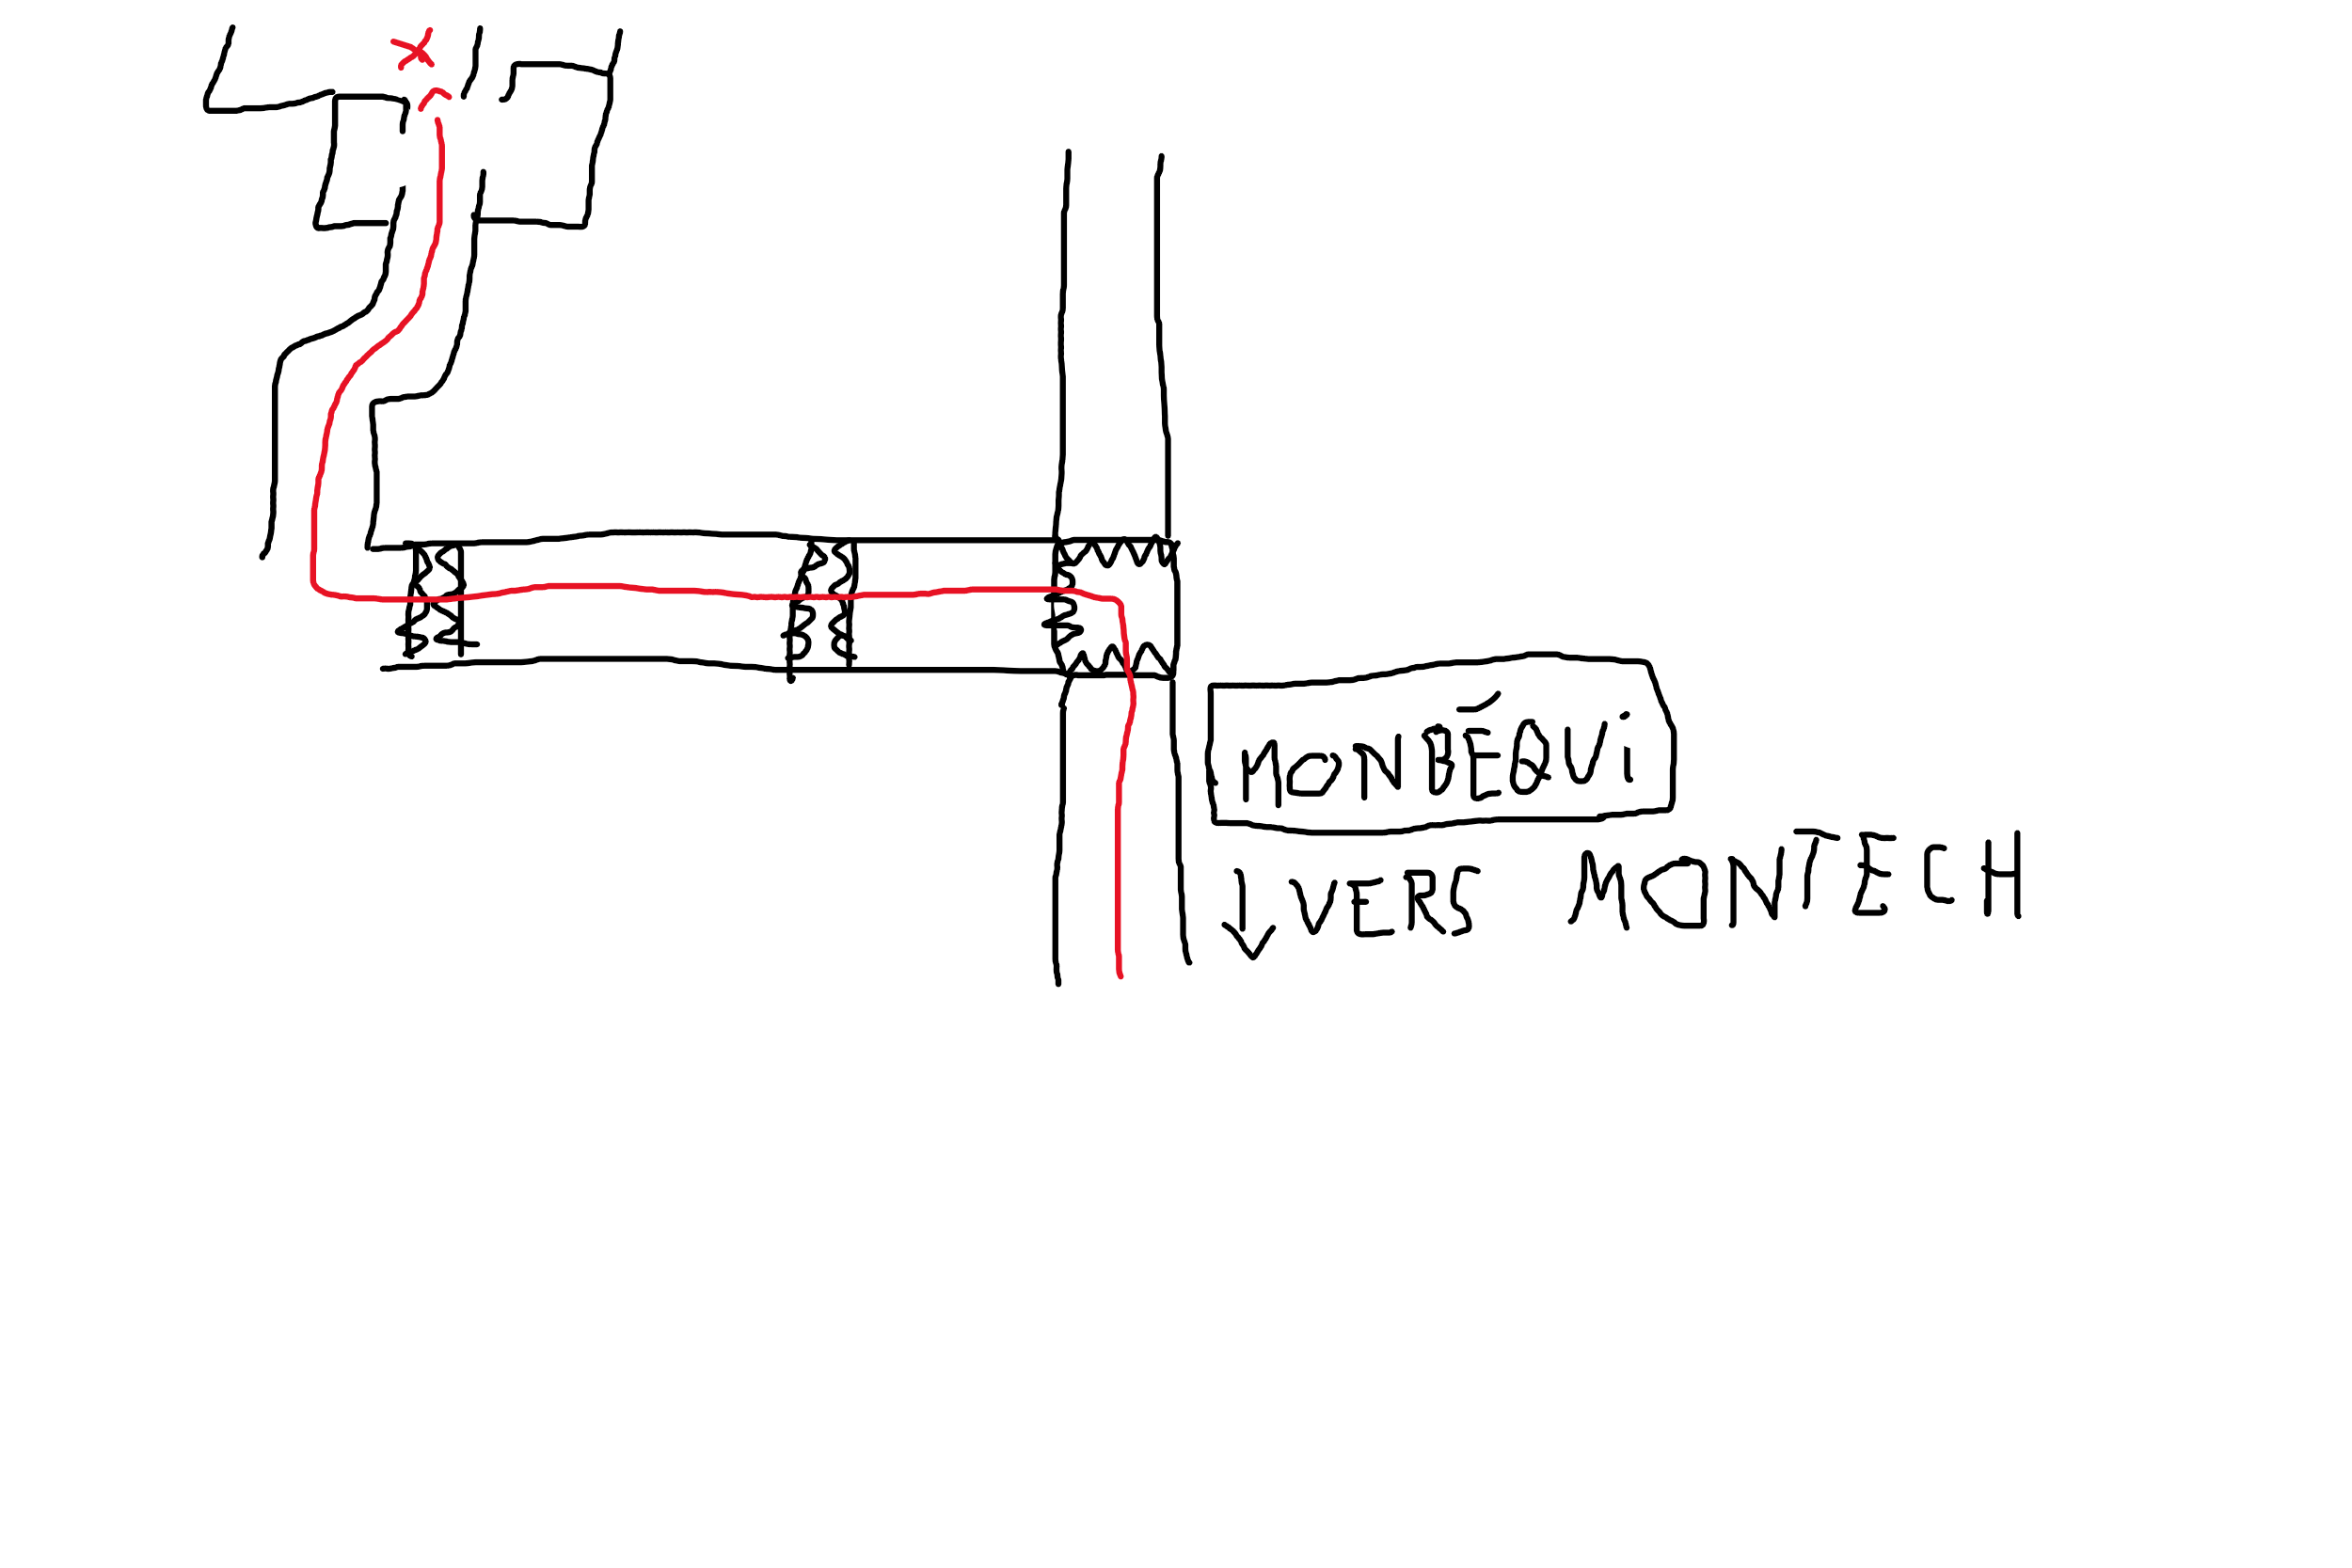 MONBÉQUi
VERS MONTECH